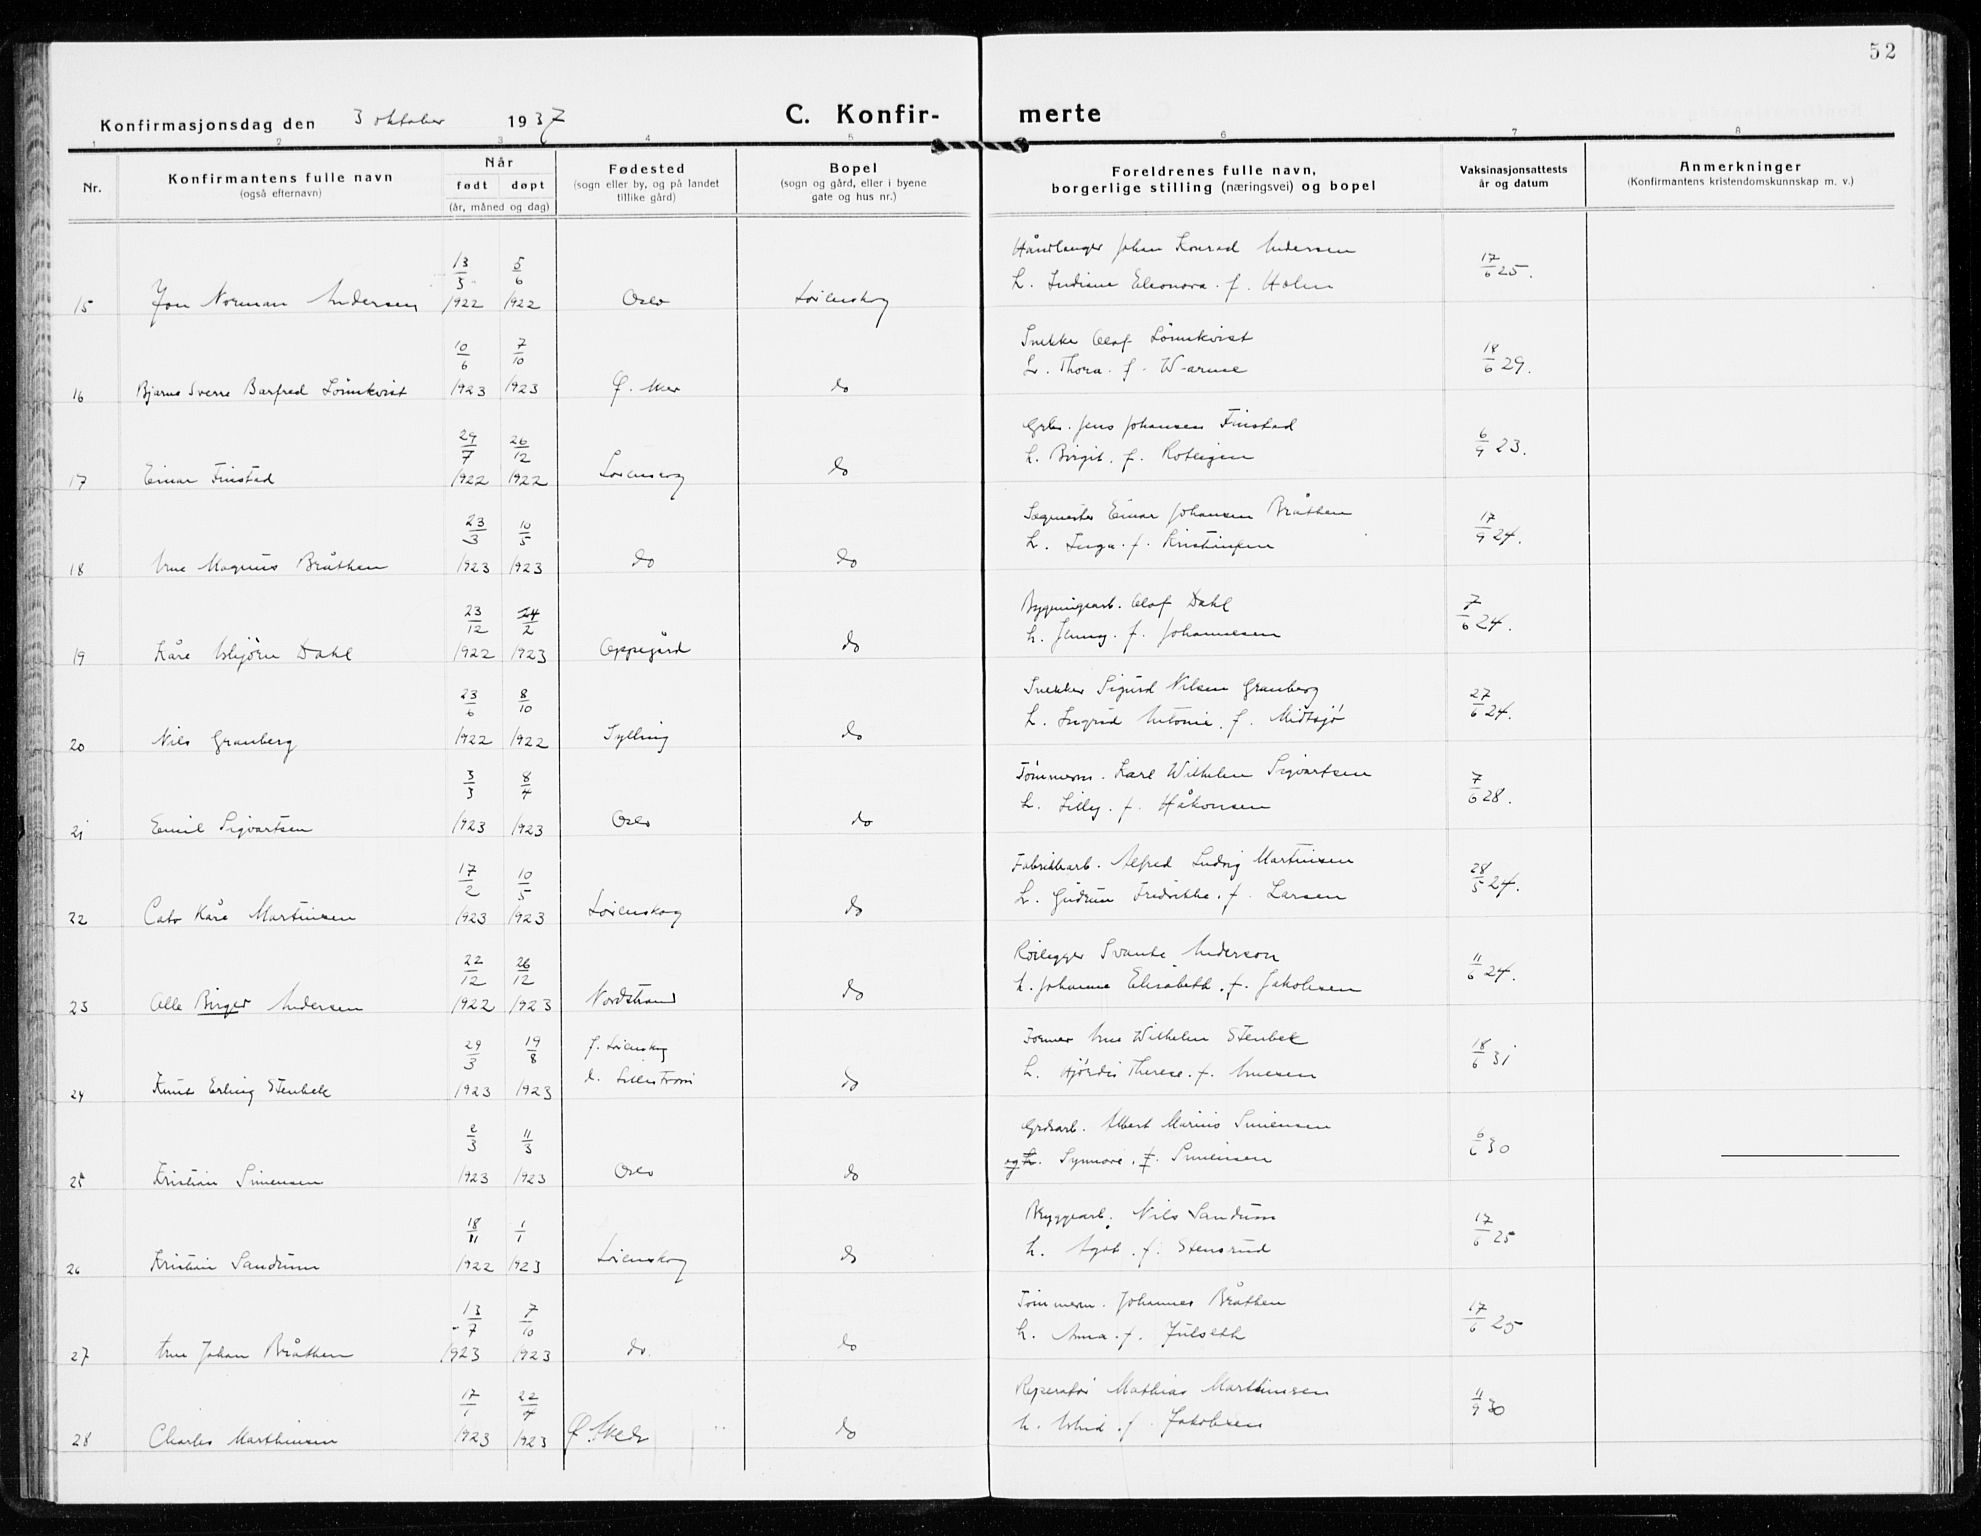 52
Konfirmasjonsdag den 3 oktober 1937
C. Konfir- merte
1 2 3 4 5 6 7 8
Nr.
Konfirmantens fulle navn
(også efternavn)
Når
født døpt
(år, måned og dag)
Fødested
(sogn eller by, og på landet
tillike gård)
Bopel
(sogn og gård, eller i byene
gate og hus nr.)
Foreldrenes fulle navn,
borgerlige stilling (næringsvei) og bopel
Vaksinasjonsattests
år og datum
Anmerkninger
(Konfirmantens kristendomskunnskap m. v.)
13/3 5/6 Håndlanger Johan Konrad Andersen 17/6 25.
15 Jon Norman Andersen 1922 1922 Oslo Lørenskog h. Indiane Eleonora f. Holm
10/6 7/10 Snekker Olof Lönnkvist 18/6 29.
16 Bjarne Sverre Barfred Lönnkvist 1923 1923 Ø. Aker do h. Thora f.
29/7 26/12 Grbr. Jens Johansen Finstad 6/9 23.
17 Einar Finstad 1922 1922 Lørenskog do h. Birgit f.
23/3 10/5 Sagmester Einar Johansen Bråthen 17/9 24.
18 Arne Magnus Bråthen 1923 1923 do do h. Inga f. Kristinsen
23/12 24/2 Bygningsarb. Olof Dahl 7/6 24.
19 Kåre Asbjørn Dahl 1922 1923 Oppegård do h. Jenny f. Johannesen
23/6 8/10 Snekker Sigurd Nilsen Granberg 27/6 24.
20 Nils Granberg 1922 1922 Sylling do h. Ingrid Antonie f. Midtsjø
3/3 8/4 Tømmerm. Karl Wilhelm Sigvartsen 7/6 28.
21 Emil Sigvartsen 1923 1923 Oslo do h. Lilly f. Håkonsen
17/2 10/5 Fabrikkarb. Alfred Ludvig Martinsen 28/5 24.
22 Cato Kåre Martinsen 1923 1923 Lørenskog do h. Gudrun Fredrikke f. Larsen
22/12 26/12 Rørlegger Svante Anderson 11/6 24.
23 Olle Birger Andersen 1922 1923 Nordstrand do h. Johanne Elisabeth f. Jakobsen
29/3 19/8 f. Lørenskog Former Arne Wilhelm Stenbek 18/6 31
24 Knut Erling Stenbek 1923 1923 d. Lillestrøm do h. Hjørdis Therese f. Arnesen
2/3 11/3 Grdsarb. Albert Marius Simensen 6/6 30
25 Kristian Simensen 1923 1923 Oslo do og h. Synnøve f. Simensen
18/11 1/1 Bryggearb. Nils Sandum 17/6 25
26 Kristian Sandum 1922 1923 Lørenskog do h. Agot f. Stensrud
13/7 7/10 Tømmerm. Johannes Bråthen 17/6 25
27 Arne Johan Bråthen 1923 1923 do. do h. Anna f. Julseth
17/1 22/4 Reperatør Mathias Marthinsen 11/9 30
28 Charles Marthinsen 1923 1923 do h. Astrid f. Jakobsen